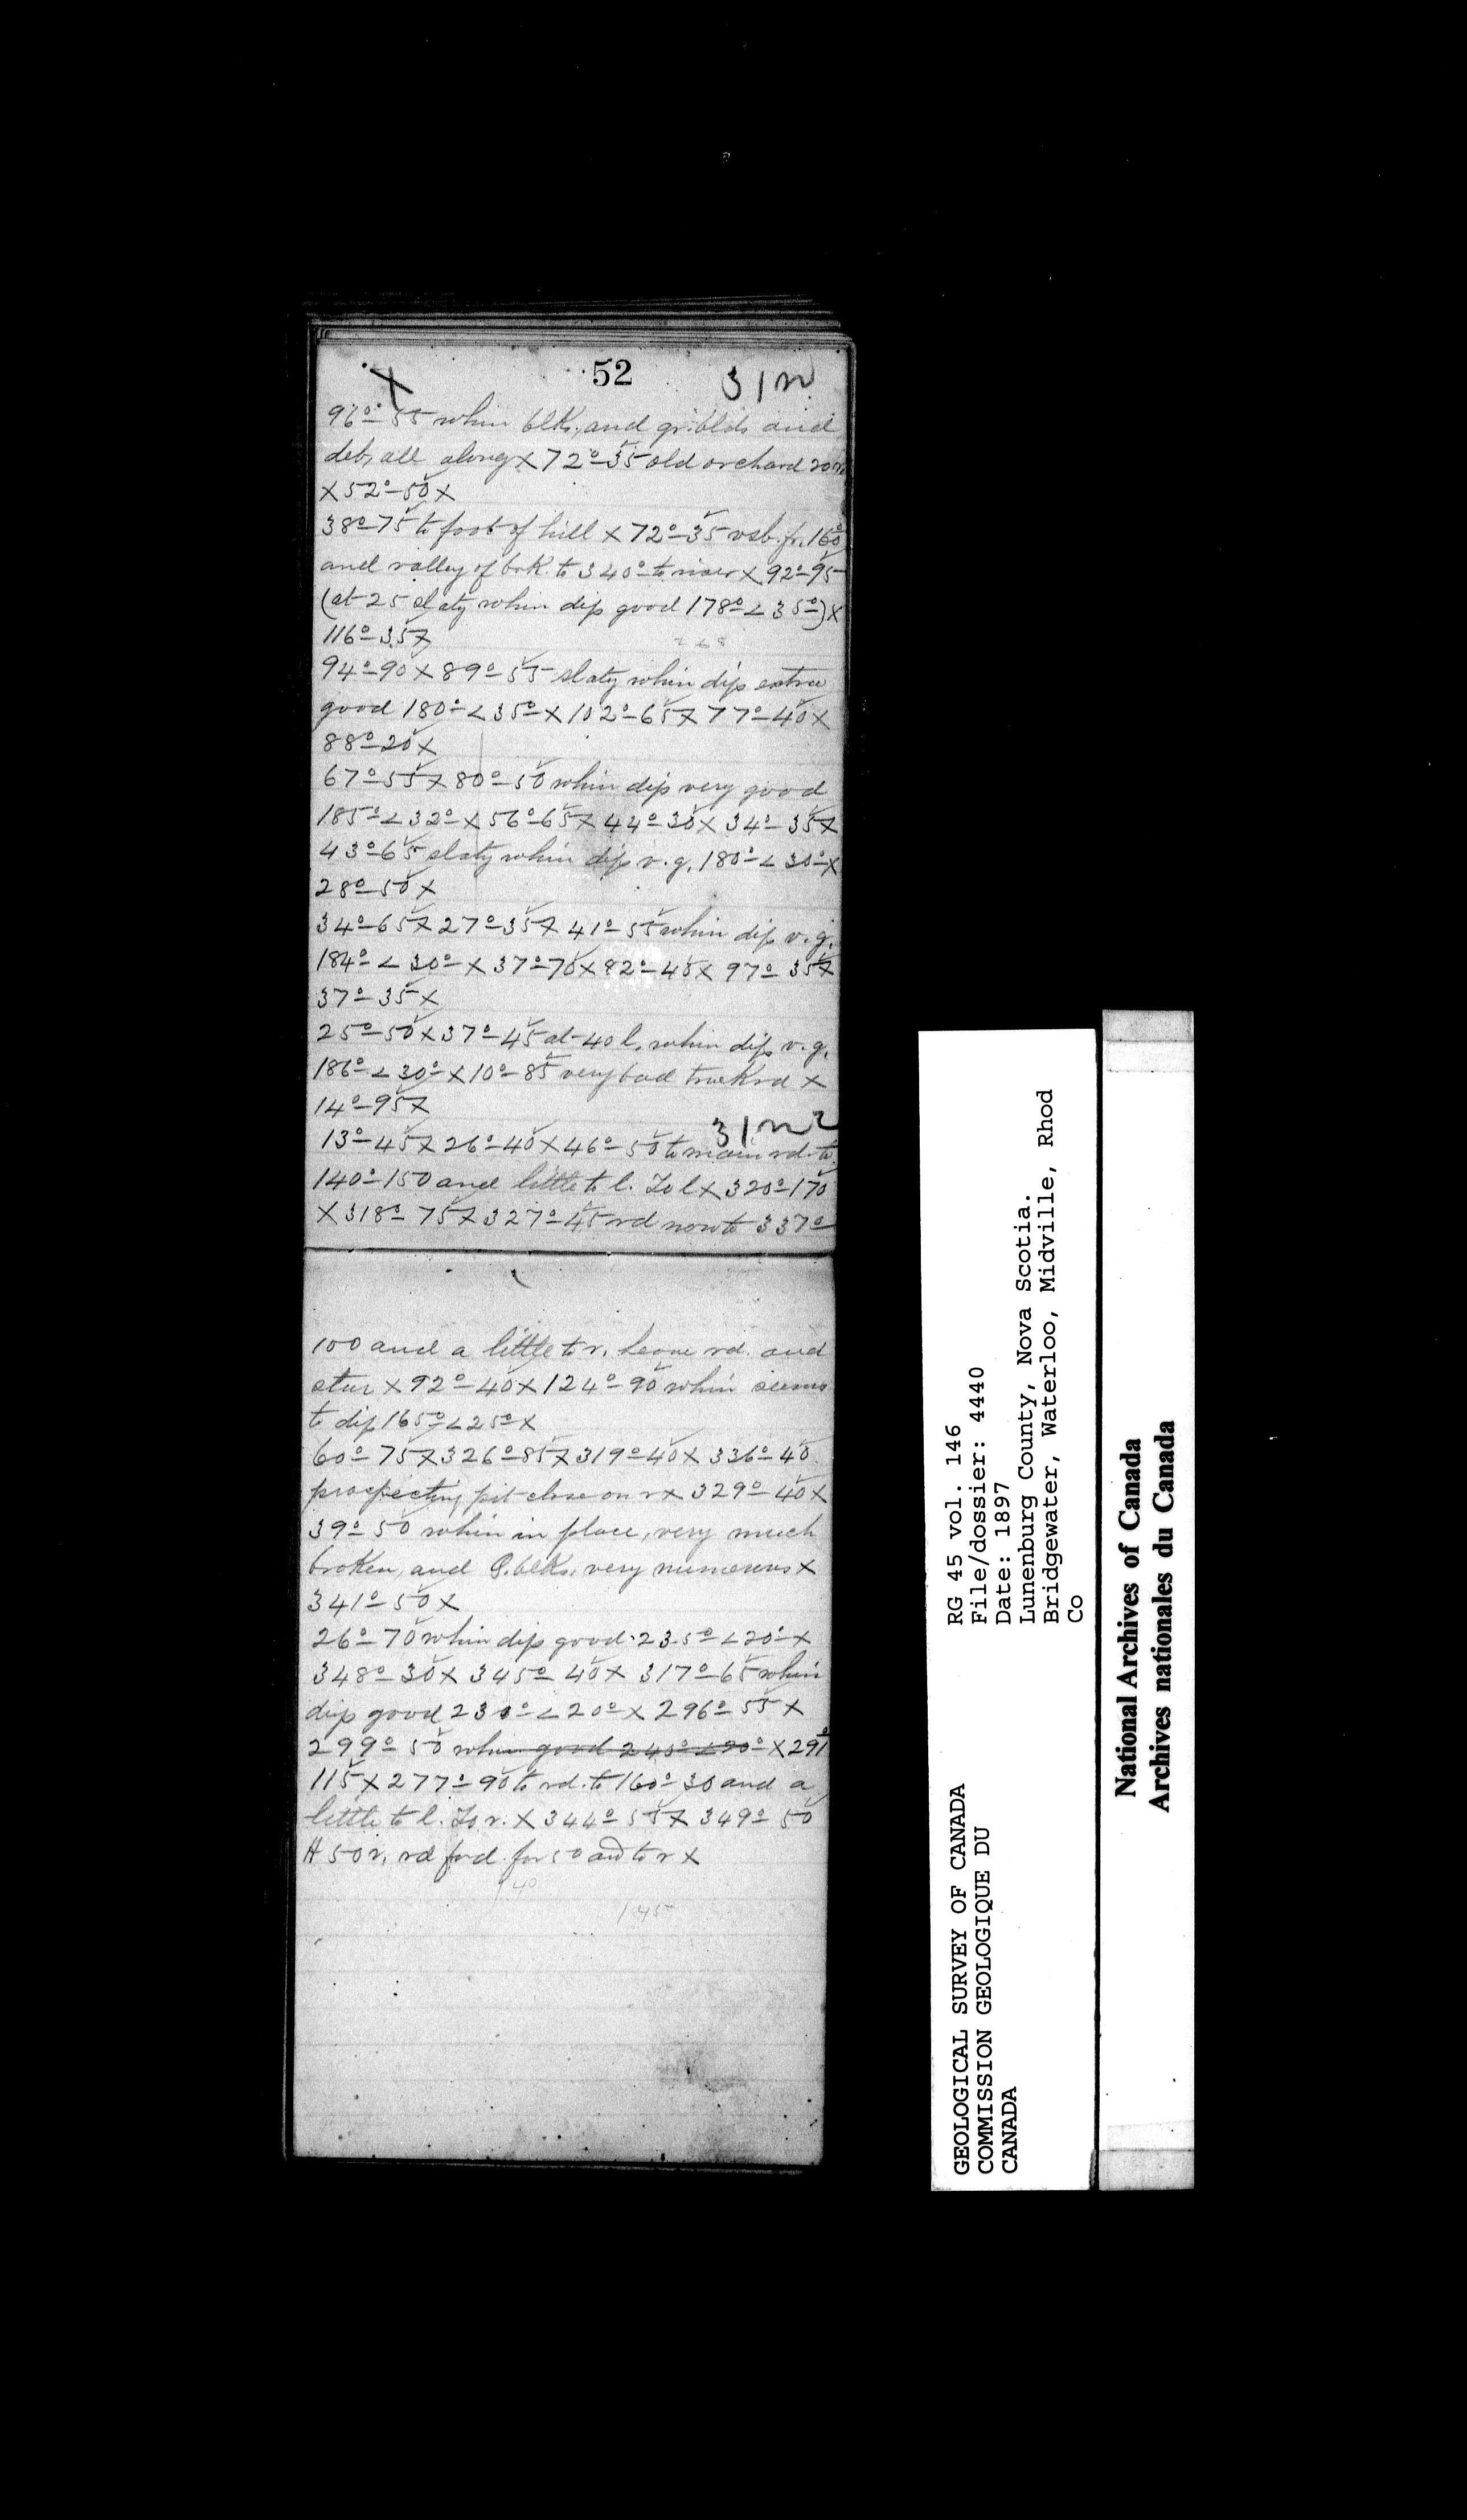 52
X 31 n
96º 55 whin blks. and gr. blds and
deb, all along X 72º 35 old orchard 20 r.
X 52º 50 X
38º 75 to foot of hill X 72º 35 vsb. fr. 160º
and valley of brk. to 340º to river X 92º 95
(at 25 slaty whin dip good 178º < 35º) X
116º 35 X
94º 90 X 89º 55 slaty whin dip extra
good 180º < 35º X 102º 65 X 77º 40 X
88º 20 X
67º 55 X 80º 50 whin dip very good
185º < 32º X 56º 65 X 44º 30 X 34º 35 X
43º 65 slaty whin dip v.g. 180º < 30º X
28º 50 X
34º 65 X 27º 35 X 41º 55 whin dip v.g.
184º < 30º X 37º 70 X 82º 45 X 97º 35 X
37º 35 X
25º 50 X 37º 45 at 40 l. whin dip v.g.
186º < 30º X 10º 85 very bad truck rd X
14º 95 X
31 n 2
13º 45 X 26º 40 X 46º 50 to main rd. to
140º 150 and little to l. To l X 320º 170
X 318º 75 X 327º 45 rd now to 337º
100 and a little to r. Leave rd. and
X 92º 40 X 124º 90 whin seems
to dip 165º < 25º X
60º 75 X 326º 85 X 319º 40 X 336º 40
prospecting pit close on r X 329º 40 X
39º 50 whin in place, very much
broken, and Q. blks. very numerous X
341º 50 X
26º 70 whin dip good 235º < 20º X
348º 30 X 345º 40 X 317º 65 whin
dip good 230º < 20º X 296º 55 X
299º 50 whin good 240º < 20º X 291º
115 X 277º 90 to rd. to 160º 30 and a
little to l. To r. X 344º 55 X 349º 50
H 50 r, rd fwd. for 50 and to r X
145
GEOLOGICAL SURVEY OF CANADA
COMMISSION GEOLOGIQUE DU
CANADA
RG 45 vol. 146
File/dossier: 4440
Date: 1897
Lunenburg County, Nova Scotia.
Bridgewater, Waterloo, Midville, Rhod
Co
National Archives of Canada
Archives nationales du Canada